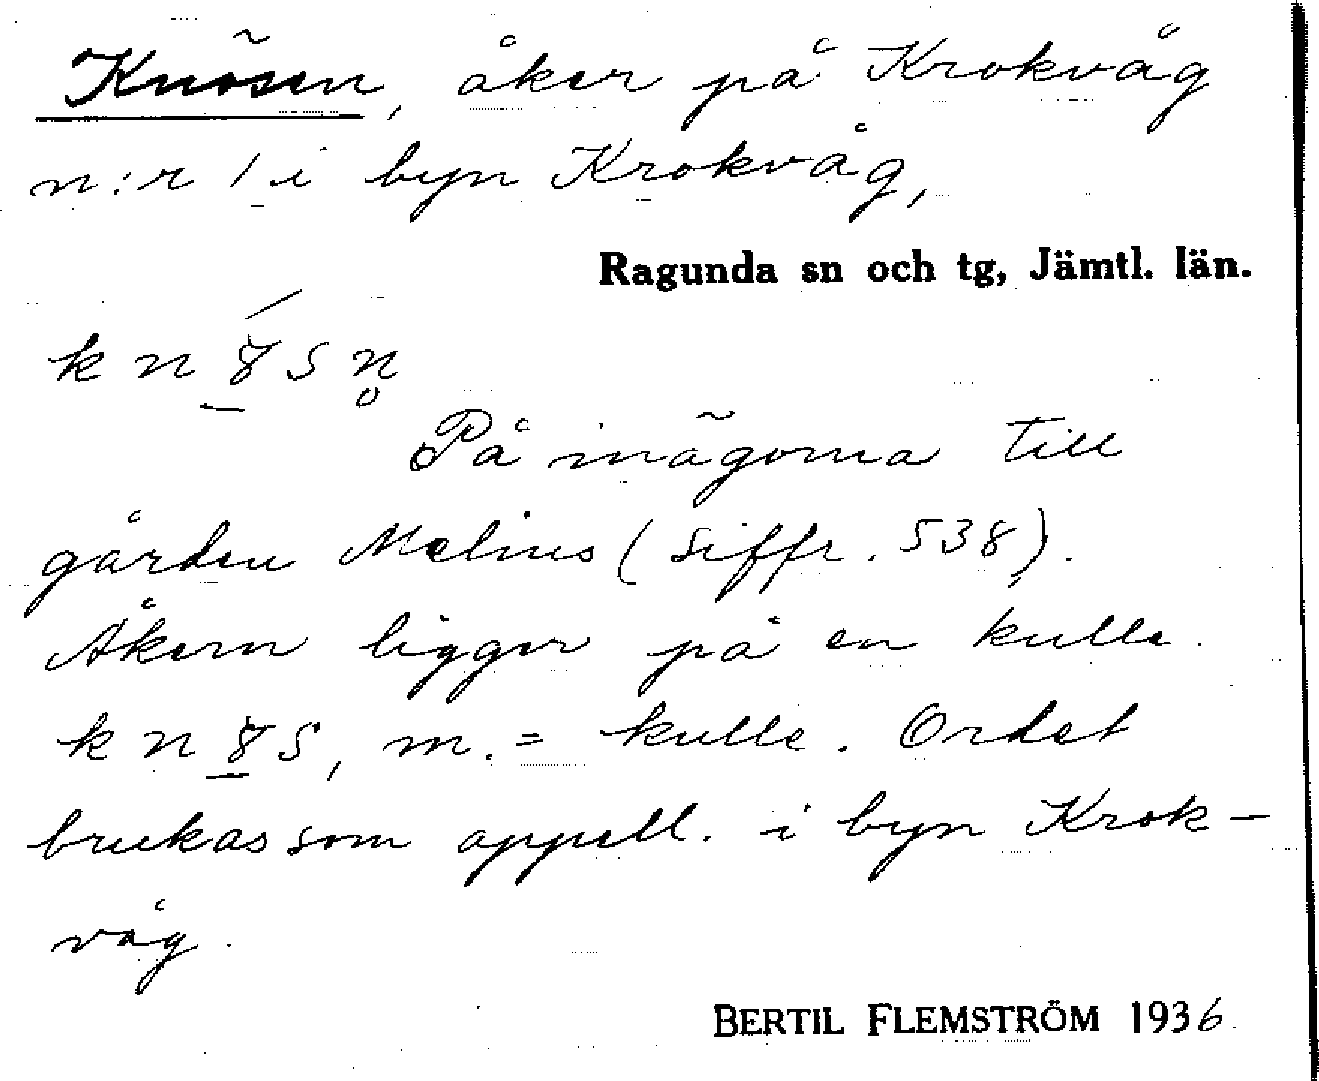 Knösen, åker på Krokvåg
n:r 1 i byn Krokvåg,
Ragunda sn och tg, Jämtl. län.
kn8̲́sn̥
På inägorna till
gården Melins (Siffr. 538).
Åkern ligger på en kulle.
kn8̲s, m. = kulle. Ordet
brukas som appell. i byn Krok-
våg.
BERTIL FLEMSTRÖM 1936